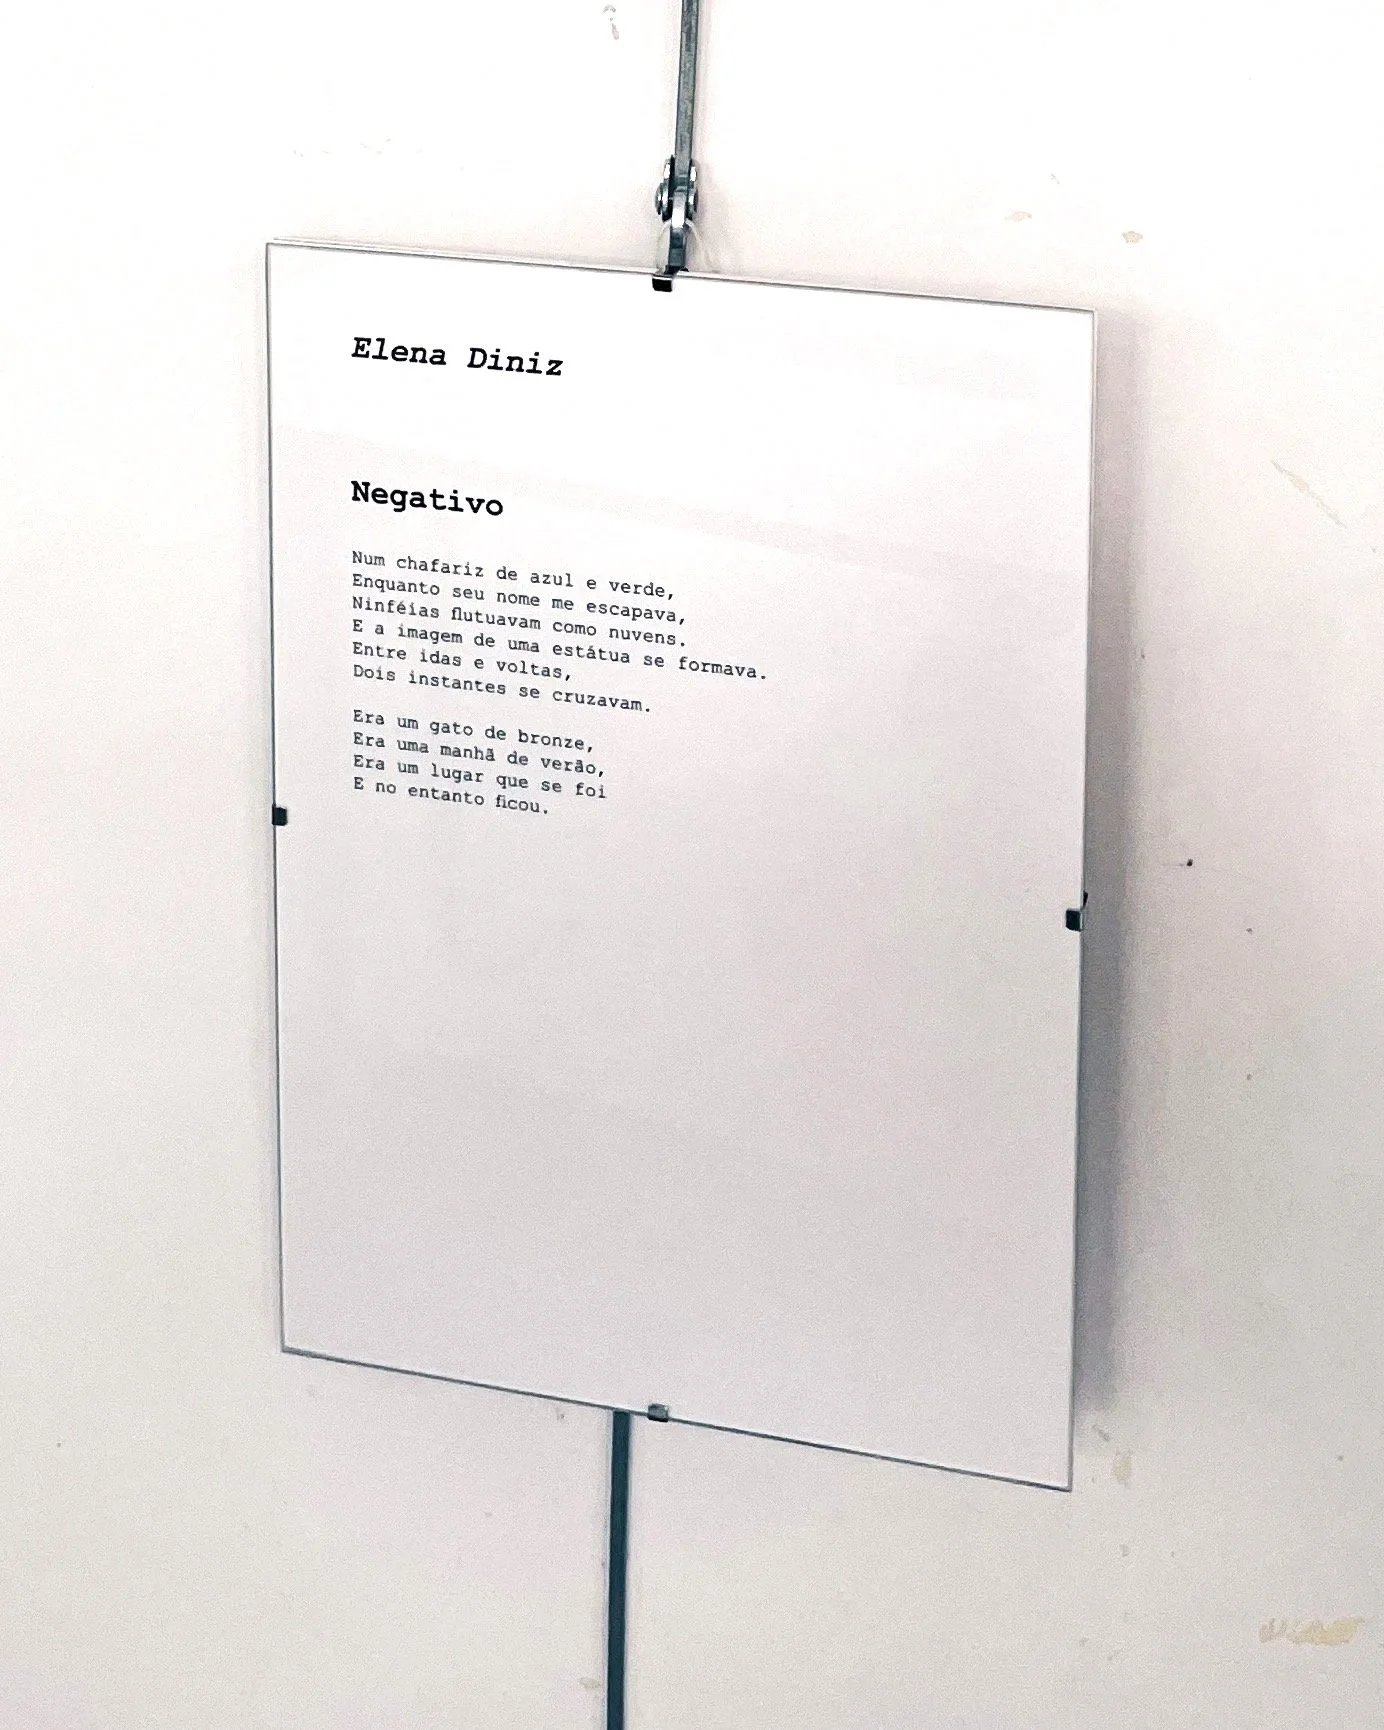 Elena Diniz
Negativo
Num chafariz de azul e verde,
Enquanto seu nome me escapava,
Ninféias flutuavam como nuvens.
E a imagem de uma estátua se formava.
Entre idas e voltas,
Dois instantes se cruzavam.
Era um gato de bronze,
Era uma manhã de verão,
Era um lugar que se foi
E no entanto ficou.